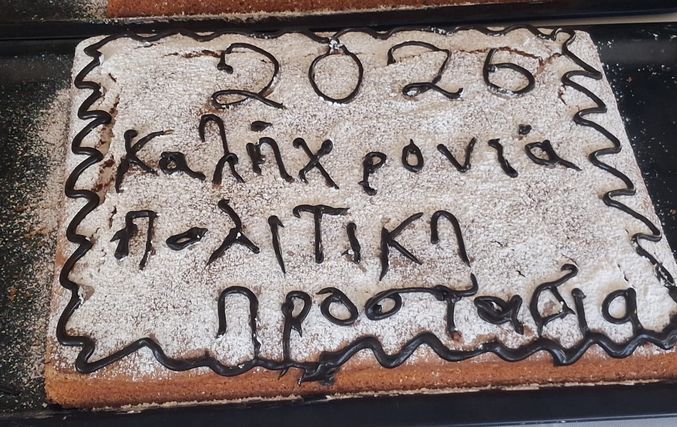 2026
Καλή χρονιά
Πολιτικη
Προστασία